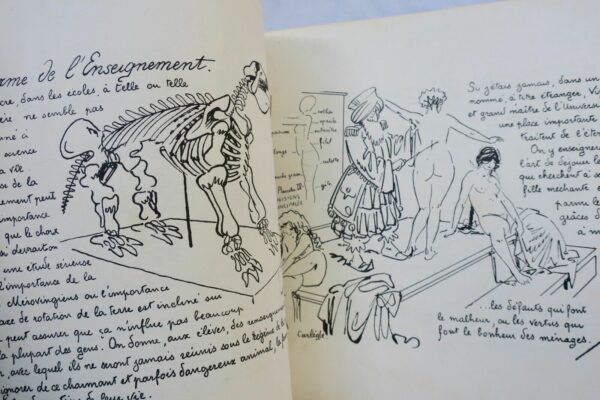 rme de l'Enseignement.
cre, dans les écoles, à telle ou telle
ère ne semble pas
né à
urence
a vie
se de la
ement peut
mportance
que la chose
si devraition
une étude sérieuse
l'importance de la
Mérovingiens ou l'importance
axe de rotation de la terre est incliné sur
peut assurer que ca n'influe pas beaucoup
la plupart des gens! On donne, aux élèves, des renseigne
, avec lequel ils ne seront jamais réunis sous le Régime de la
ignorer de ce charmant et parfois dangereux animal, la f
de leur vie.
Planche IV
Carlègle.
Si j'étais jamais, dans un
nommé, à titre étranger, Vi
et grand maître de l'Univers
une place importante
traitent de l'éter
On y enseigner
l'art de déjouer l
que cherchent à s
fille méchante e
parme le
grâces d
a m
...les défauts qui font
le malheur, ou les vertus qui
font le bonheur des ménages.